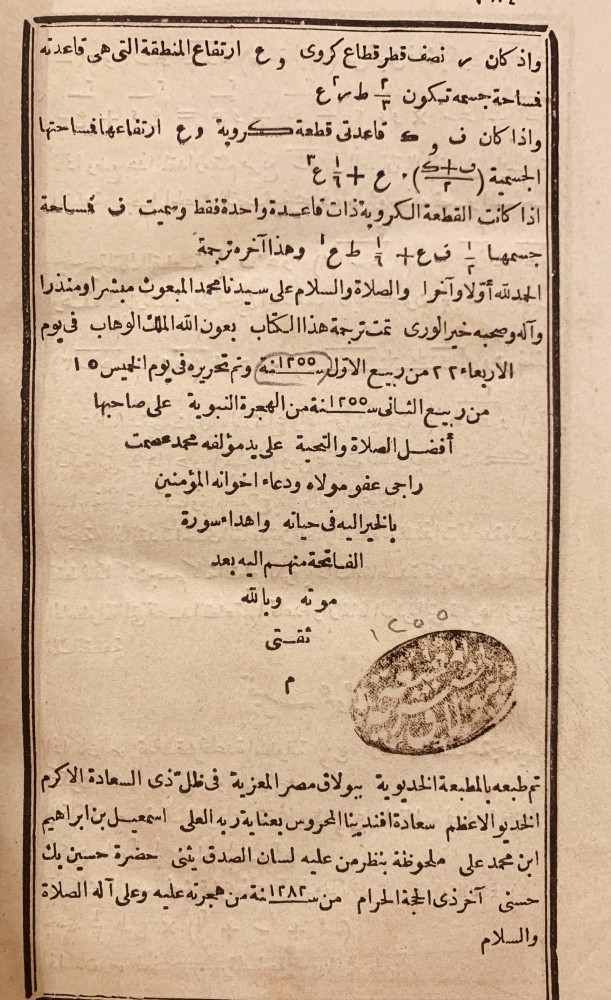 واذ كان ر نصف قطر قطاع كروى و ع ارتفاع المنطقة التى هى قاعدته
فساحة جسمه تكون ٢/٣ ط ر٢ ع
واذا كان ف و ك قاعدتى قطعة كروية و ع ارتفاعها فساحتها
الجسمية (ف+ك/٢) . ع + ١/٦ ع٣
اذا كانت القطعة الكروية ذات قاعدة واحدة فقط وسميت ف فساحة
جسمها ١/٢ ف ع + ١/٦ ط ع وهذا آخره ترجمة
الحمد لله أولا وآخرا والصلاة والسلام على سيدنا محمد المبعوث مبشرا ومنذرا
وآله وصحبه خير الورى تمت ترجمة هذا الكتاب بعون الله الملك الوهاب فى يوم
الاربعاء ٢٢ من ربيع الاول سنة ١٢٥٥ وتم تحريره فى يوم الخميس ١٥
من ربيع الثانى سنة ١٢٥٥ من الهجرة النبوية على صاحبها
أفضل الصلاة والتحية على يد مؤلفه محمد عصمت
راجى عفو مولاه ودعاء اخوانه المؤمنين
بالخير اليه فى حياته واهداء سورة
الفاتحة منهم اليه بعد
موته وبالله
ثقتى
م
١٢٥٥
تم طبعه بالمطبعة الخديوية ببولاق مصر المعزية فى ظل ذى السعادة الاكرم
الخديو الاعظم سعادة افندينا المحروس بعناية ربه العلى اسمعيل بن ابراهيم
ابن محمد على ملحوظة بنظر من عليه لسان الصدق يثنى حضرة حسين بك
حسنى آخر ذى الحجة الحرام من سنة ١٢٨٢ من هجرته عليه وعلى آله الصلاة
والسلام